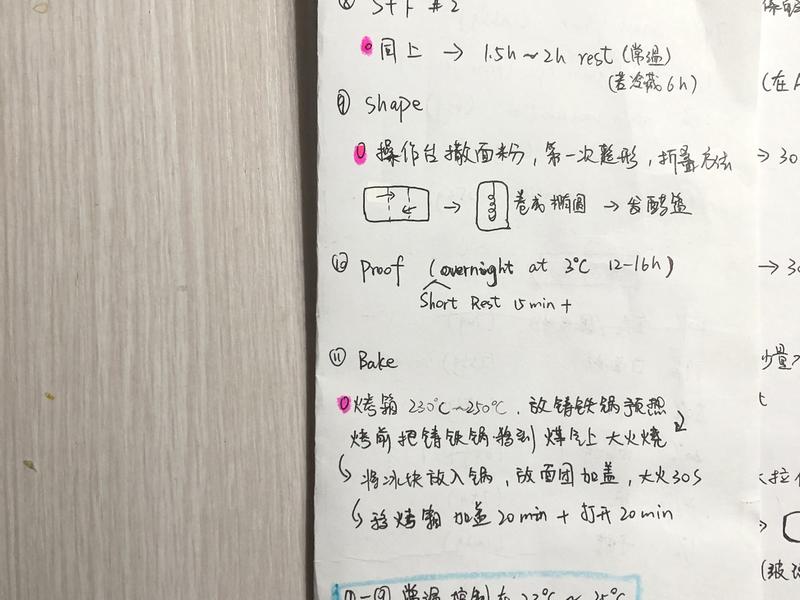 ⑧ S+F #2
同上 → 1.5h~2h rest (常温)
(若冷藏6h)
⑨ shape
操作台撒面粉，第一次整形，折叠方法
→ 卷成椭圆 → 发酵篮
⑩ Proof (overnight at 3°C 12-16h)
Short Rest 15min +
⑪ Bake
烤箱 230°C~250°C，放铸铁锅预热
烤前把铸铁锅移到煤气上大火烧
将冰块放入锅，放面团加盖，大火30S
移烤箱 加盖20min + 打开20min
常温控制在23°C~25°C
(在
→ 30
→ 30
少量
t
拉
→